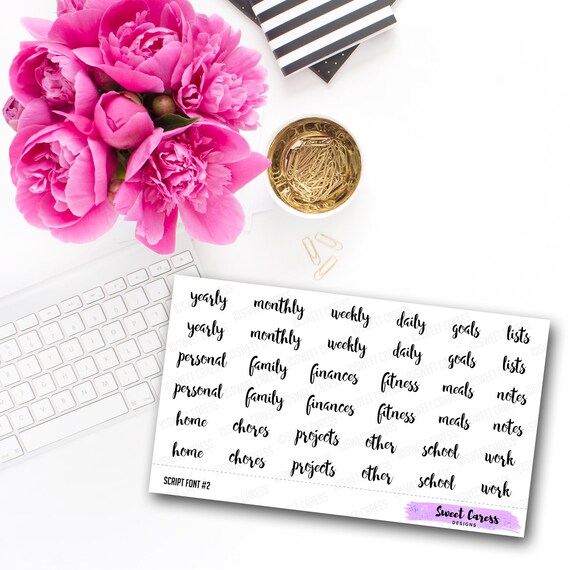 yearly monthly weekly daily goals lists
yearly monthly weekly daily goals lists
personal family finances fitness meals notes
personal family finances fitness meals notes
home chores projects other school work
home chores projects other school work
SCRIPT FONT #2
Sweet Caress
DESIGNS